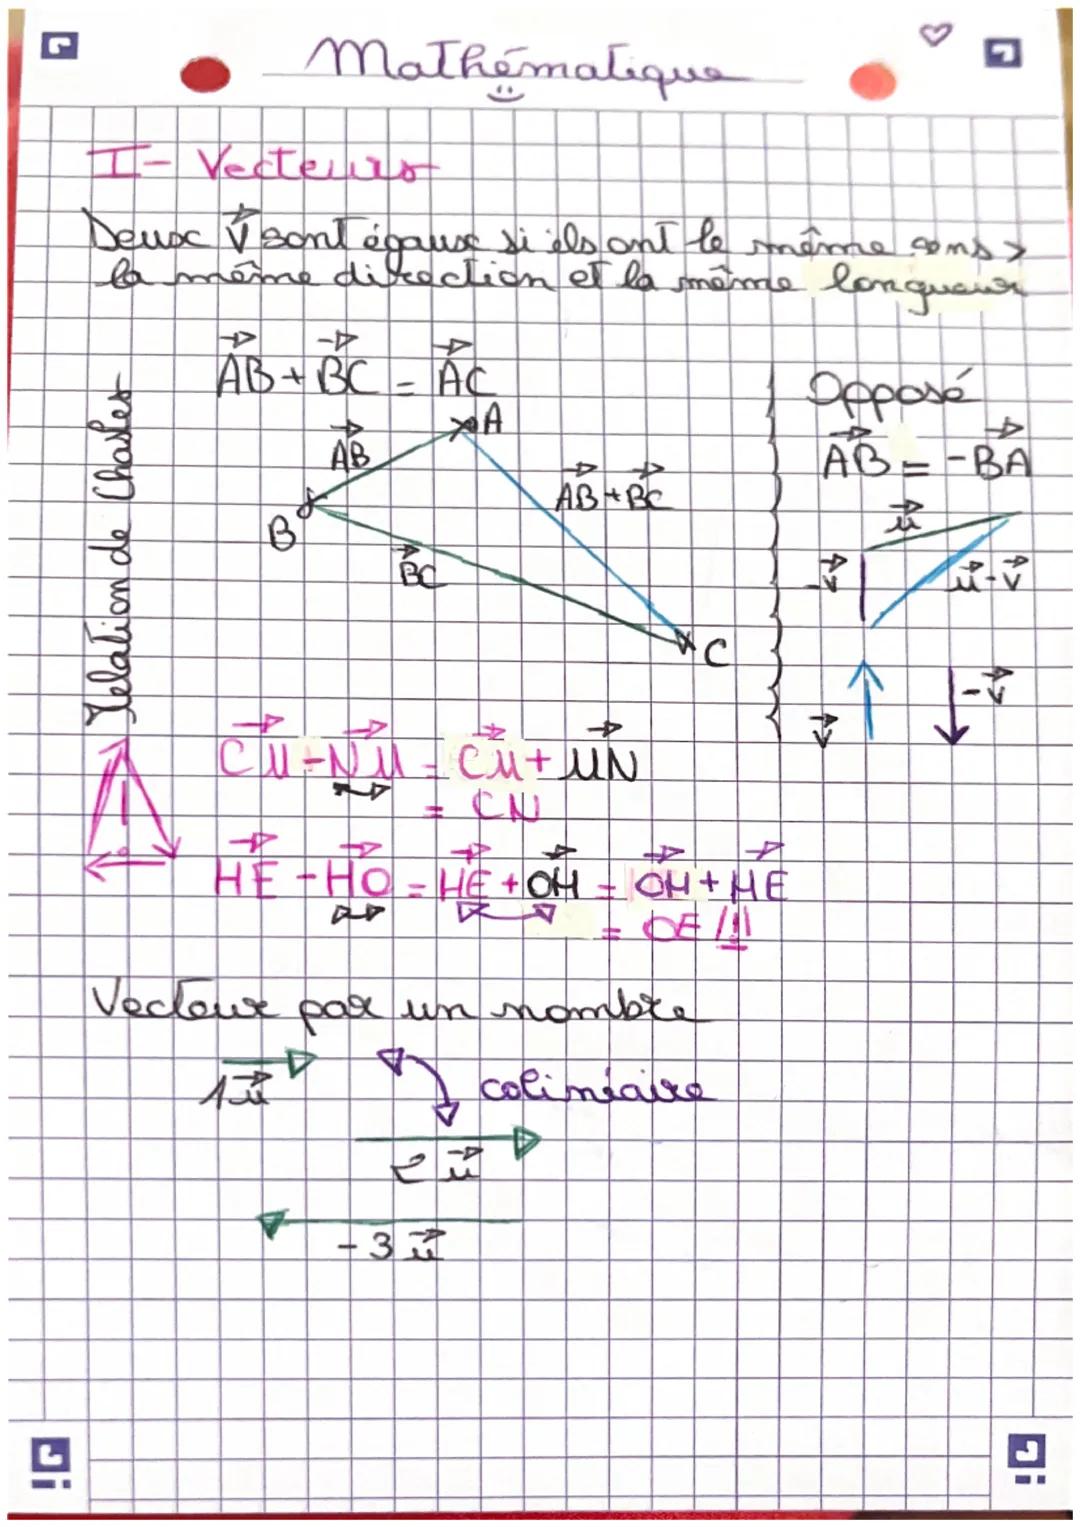 Mathématique
I- Vecteurs
Deux V sont égaux si ils ont le même sens >
la même direction et la même longueur
Relation de Chasles
AB + BC = AC
A
AB
AB + BC
B
BC
C
Opposé
AB = -BA
u
-v
u-v
v
-v
CM - NM = CM + MN
= CN
HE - HO = HE + OH = OH + HE
= OE !!!
Vecteur par un nombre
1u
colinéaire
2 u
- 3 u